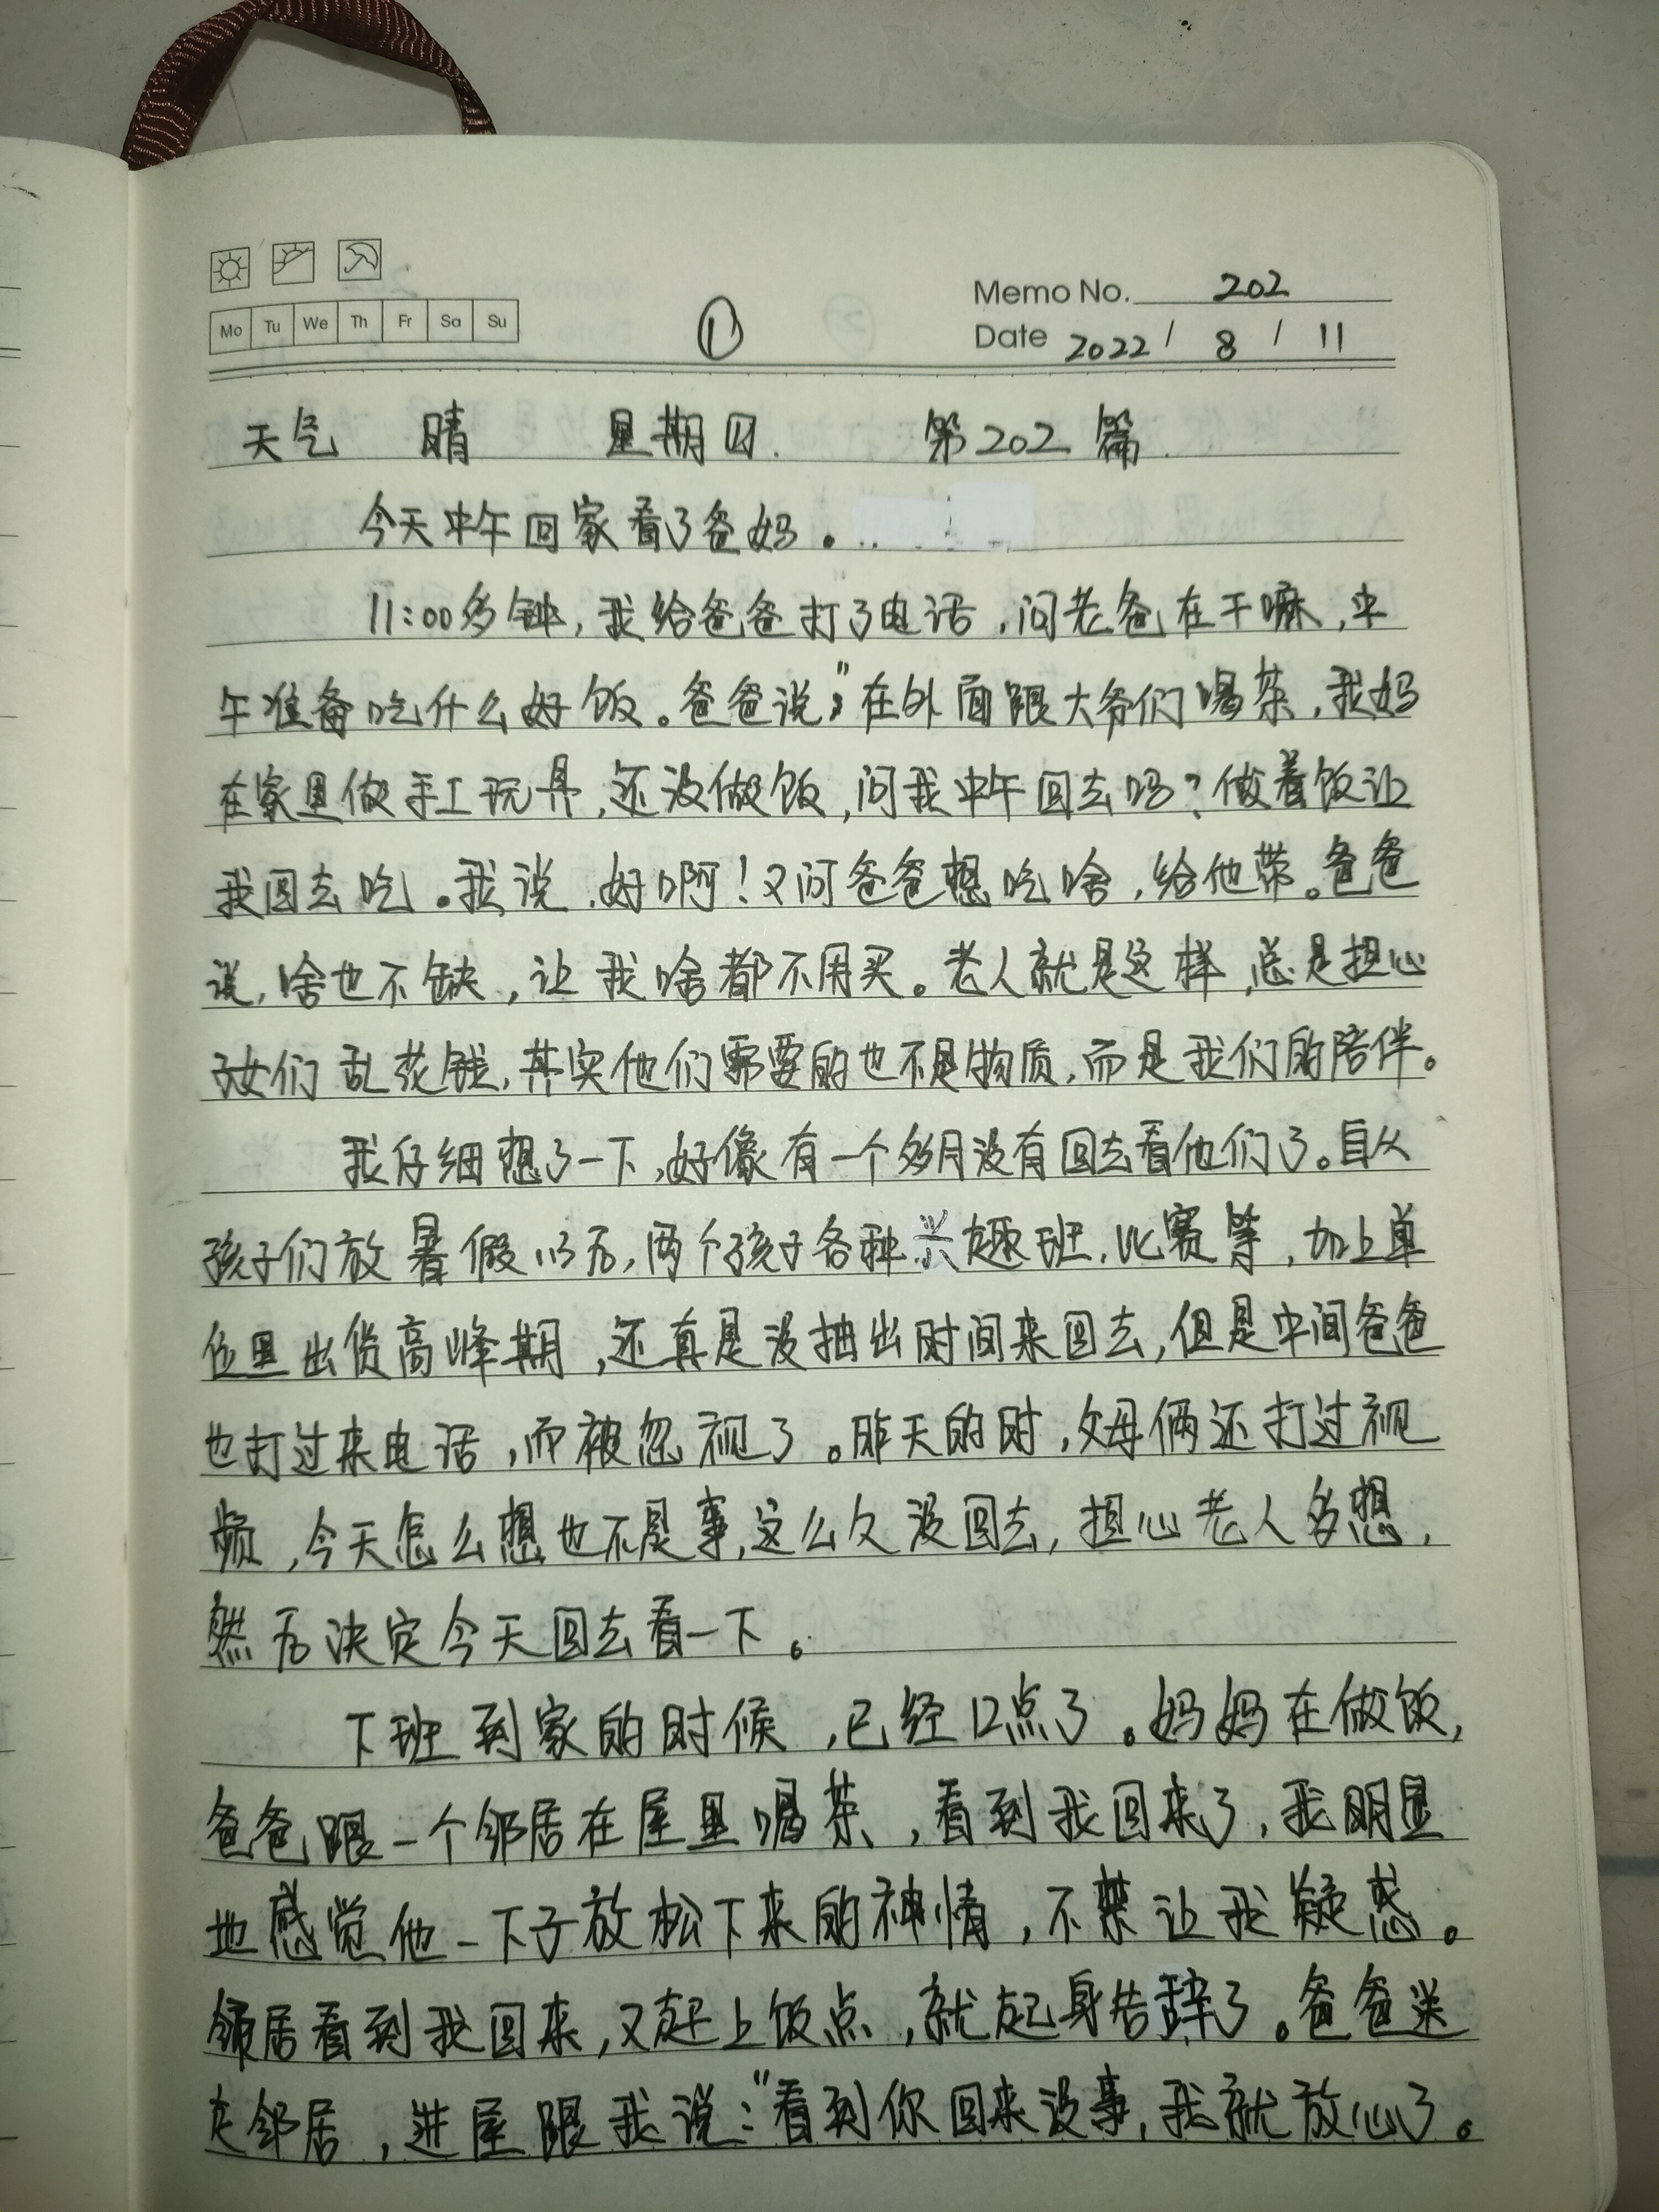 Memo No. 202
Mo Tu We Th Fr Sa Su
①
Date 2022 / 8 / 11
天气 晴 星期四. 第202篇.
今天中午回家看了爸妈。
11:00多钟,我给爸爸打了电话,问老爸在干嘛,中
午准备吃什么好饭。爸爸说:"在外面跟大爷们喝茶,我妈
在家里做手工玩具,还没做饭,问我中午回去吗?做着饭让
我回去吃。我说,好啊!又问爸爸想吃啥,给他带。爸爸
说,啥也不缺,让我啥都不用买。老人就是这样,总是担心
子女们乱花钱,其实他们需要的也不是物质,而是我们的陪伴。
我仔细想了一下,好像有一个多月没有回去看他们了。自从
孩子们放暑假以后,两个孩子各种兴趣班,比赛等,加上单
位里出货高峰期,还真是没抽出时间来回去,但是中间爸爸
也打过来电话,而被忽视了。昨天的时,父母俩还打过视
频,今天怎么想也不是事,这么久没回去,担心老人多想,
然后决定今天回去看一下。
下班到家的时候,已经12点了。妈妈在做饭,
爸爸跟一个邻居在屋里喝茶,看到我回来了,我明显
地感觉他一下子放松下来的神情,不禁让我疑惑。
邻居看到我回来,又赶上饭点,就起身告辞了。爸爸送
走邻居,进屋跟我说:"看到你回来没事,我就放心了。